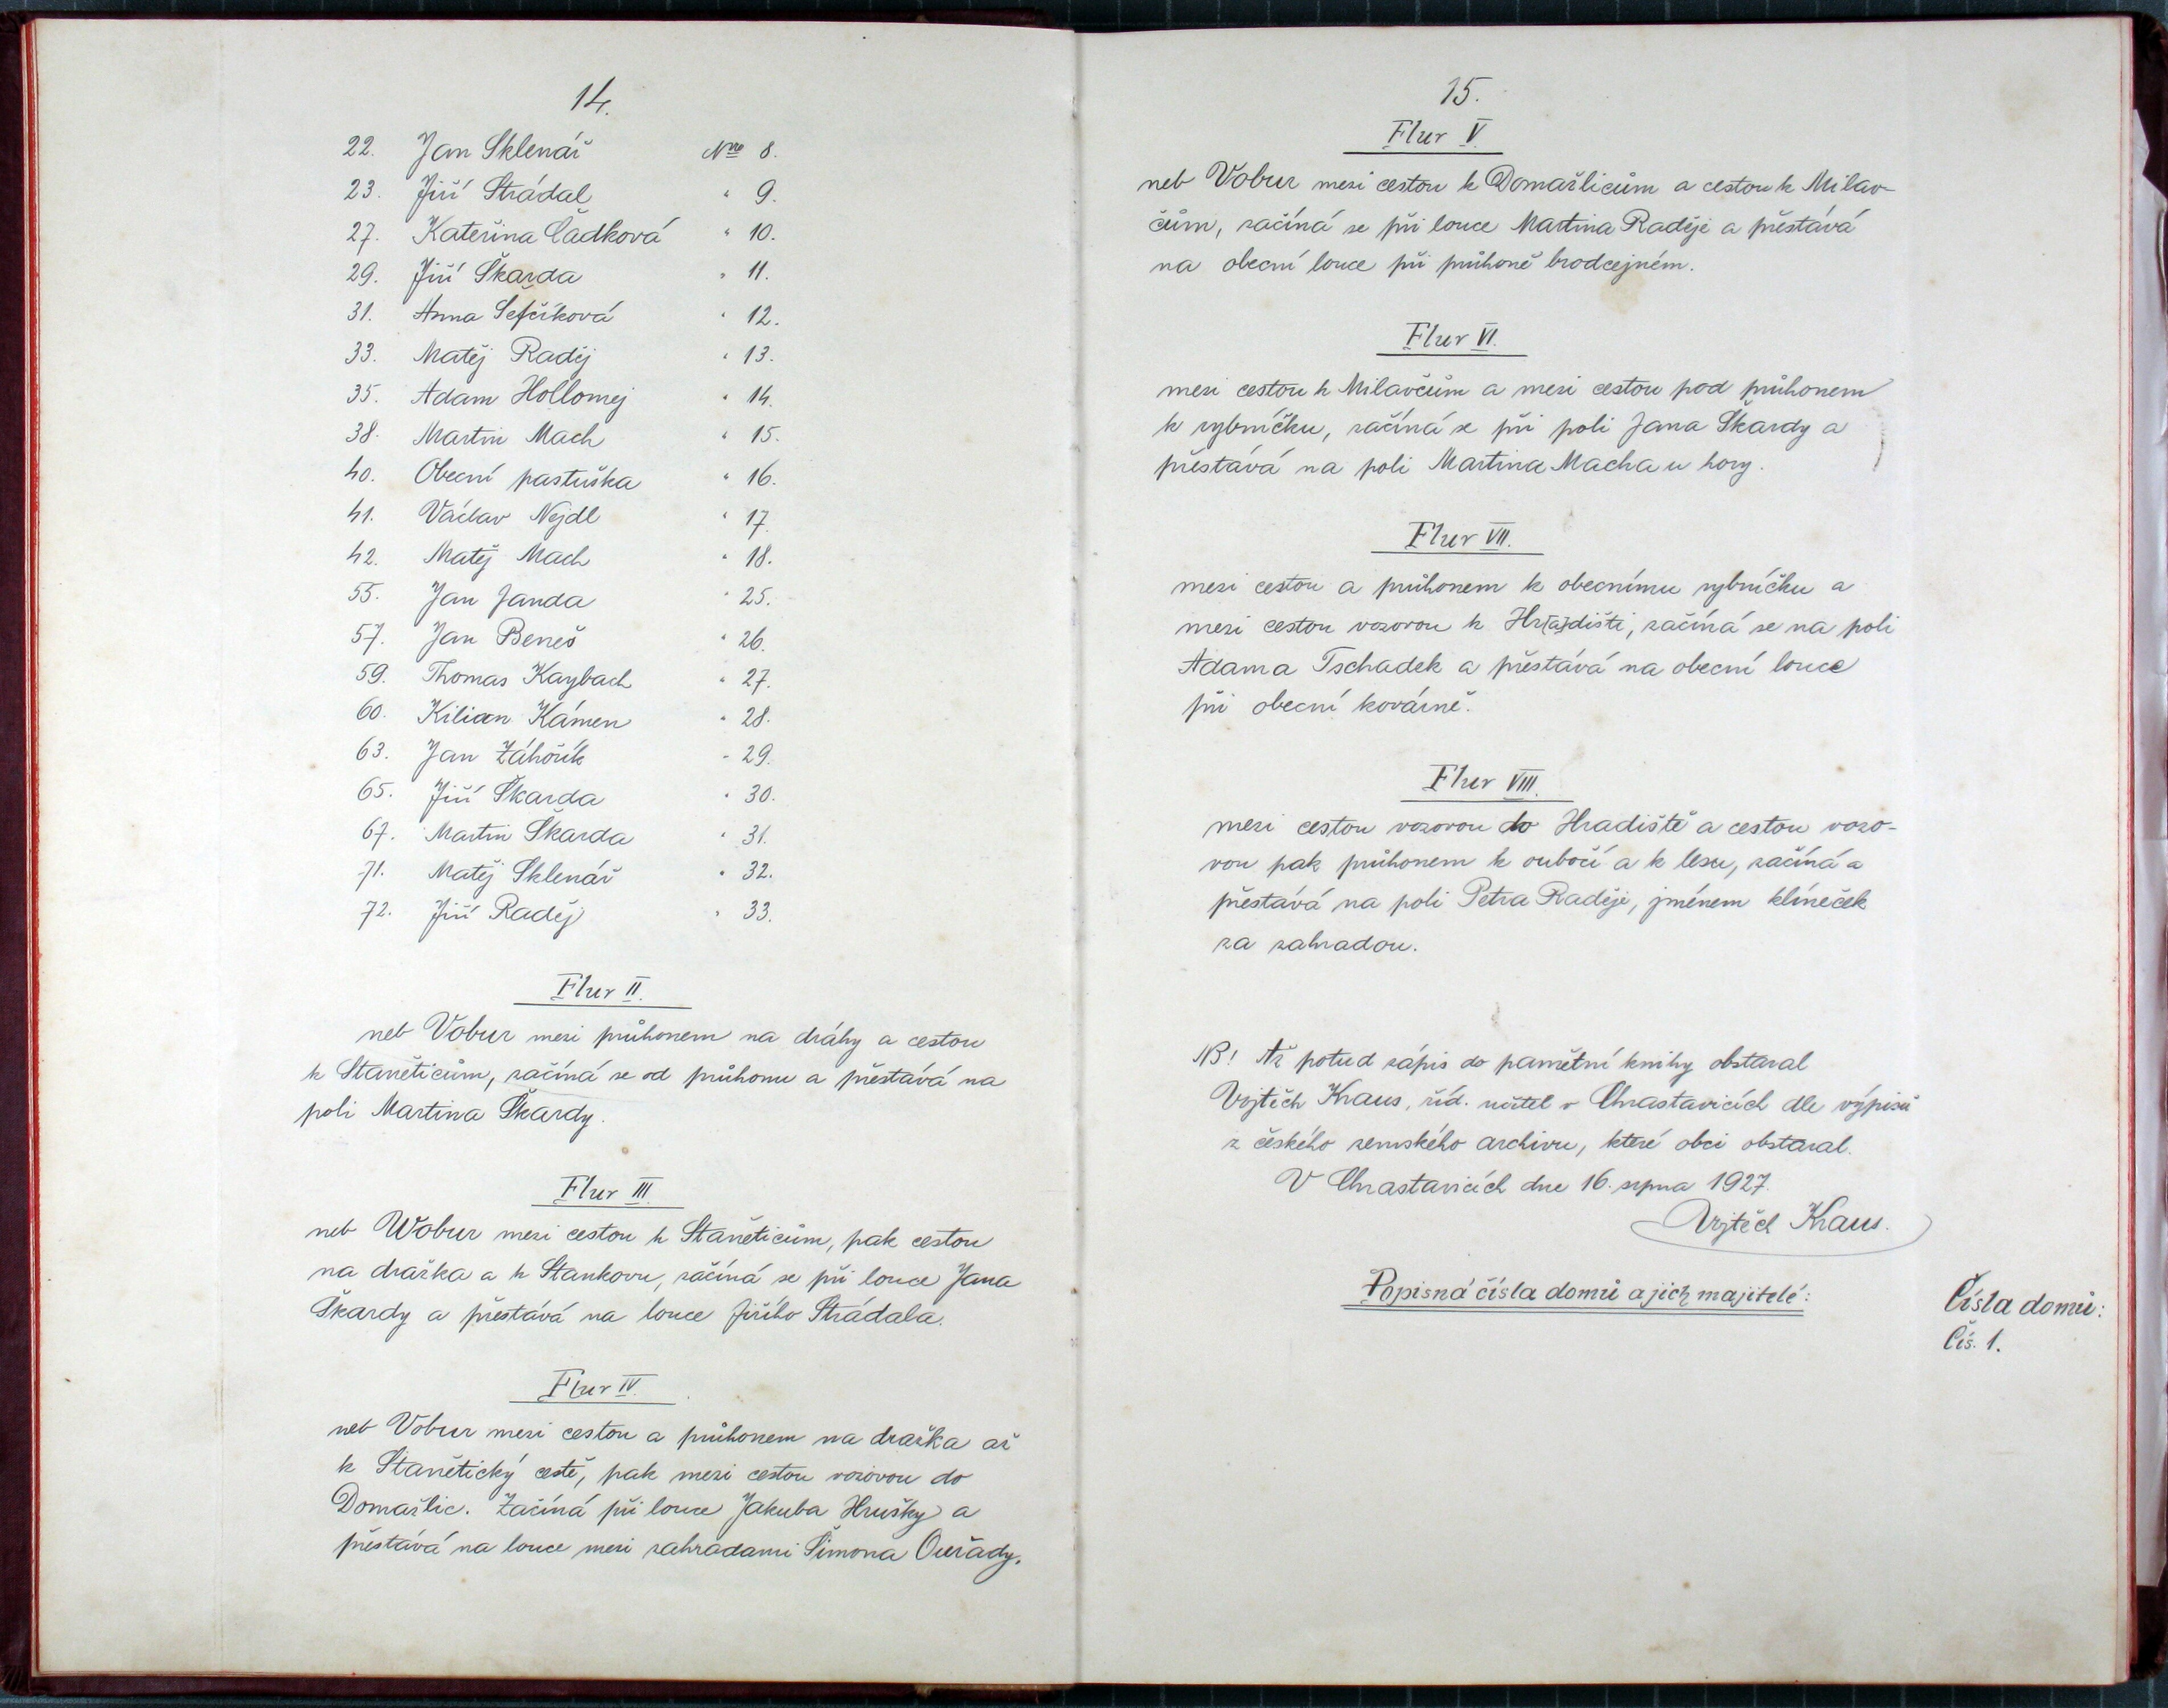 14.
22. Jan Sklenář Nro 8.
23. Jiří Strádal " 9.
27. Kateřina Čadková " 10.
29. Jiří Škarda " 11.
31. Anna Sefčíková " 12.
33. Matěj Raděj " 13.
35. Adam Hollomej " 14.
38. Martin Mach " 15.
40. Obecní pastuška " 16.
41. Václav Nejdl " 17.
42. Matěj Mach " 18.
55. Jan Janda " 25.
57. Jan Beneš " 26.
59. Thomas Kaybach " 27.
60. Kilian Kámen " 28.
63. Jan Záhořík " 29.
65. Jiří Škarda " 30.
67. Martin Škarda " 31.
71. Matěj Sklenář " 32.
72. Jiří Raděj " 33.
Flur II.
neb Vobur mezi průhonem na dráhy a cestou
k Staněticům, začíná se od průhonu a přestává na
poli Martina Škardy.
Flur III.
neb Wobur mezi cestou k Staněticům, pak cestou
na dražka a k Stankovu, začíná se při louce Jana
Škardy a přestává na louce Jiřího Strádala.
Flur IV.
neb Vobur mezi cestou a průhonem na dražka až
k Stanětický cestě, pak mezi cestou vozovou do
Domažlic. Začíná při louce Jakuba Hrušky a
přestává na louce mezi zahradami Šimona Ouřady.
15.
Flur V.
neb Vobur mezi cestou k Domažlicům a cestou k Milav-
čům, začíná se při louce Martina Raděje a přestává
na obecní louce při průhoně brodcejném.
Flur VI.
mezi cestou k Milavčům a mezi cestou pod průhonem
k rybníčku, začíná se při poli Jana Škardy a
přestává na poli Martina Macha u hory.
Flur VII.
mezi cestou a průhonem k obecnímu rybníčku a
mezi cestou vozovou k Hr[a]dišti, začíná se na poli
Adama Tschadek a přestává na obecní louce
při obecní kovárně.
Flur VIII.
mezi cestou vozovou do Hradiště a cestou vozo-
vou pak průhonem k oubočí a k lesu, začíná a
přestává na poli Petra Raděje, jménem klíneček
za zahradou.
NB! Až potud zápis do pamětní knihy obstaral
Vojtěch Kraus, říd. učitel v Chrastavicích dle výpisů
z českého zemského archivu, které obci obstaral.
V Chrastavicích dne 16. srpna 1927.
Vojtěch Kraus.
Popisná čísla domů a jich majitelé:
Čísla domů:
Čís. 1.